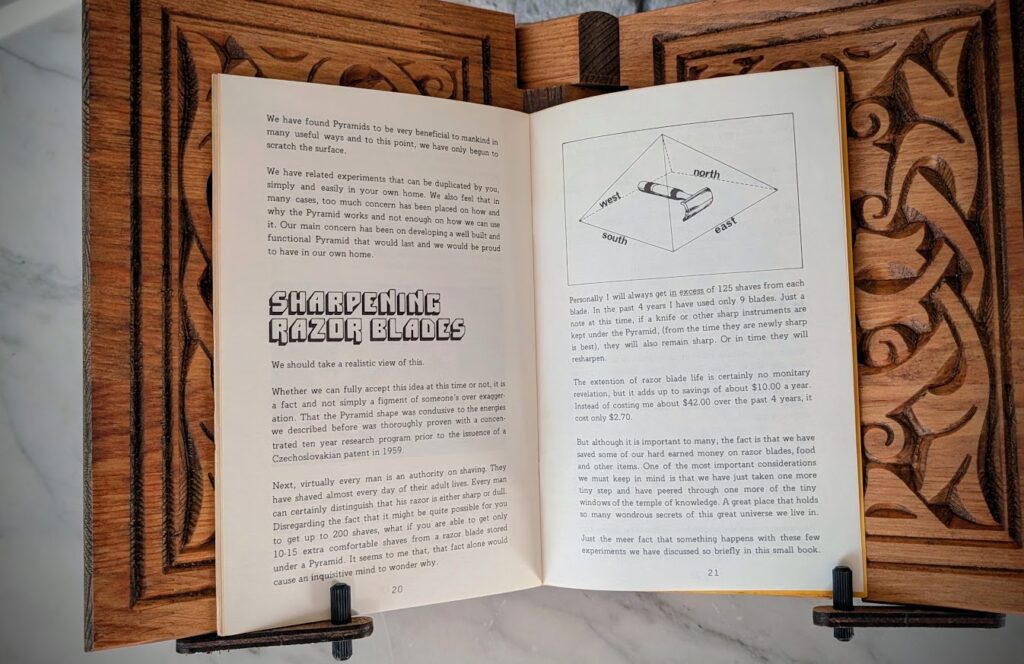 We have found Pyramids to be very beneficial to mankind in
many useful ways and to this point, we have only begun to
scratch the surface.
We have related experiments that can be duplicated by you,
simply and easily in your own home. We also feel that in
many cases, too much concern has been placed on how and
why the Pyramid works and not enough on how we can use
it. Our main concern has been on developing a well built and
functional Pyramid that would last and we would be proud
to have in our own home.
SHARPENING
RAZOR BLADES
We should take a realistic view of this.
Whether we can fully accept this idea at this time or not, it is
a fact and not simply a figment of someone's over exagger-
ation. That the Pyramid shape was condusive to the energies
we described before was thoroughly proven with a concen-
trated ten year research program prior to the issuence of a
Czechoslovakian patent in 1959.
Next, virtually every man is an authority on shaving. They
have shaved almost every day of their adult lives. Every man
can certainly distinguish that his razor is either sharp or dull.
Disregarding the fact that it might be quite possible for you
to get up to 200 shaves, what if you are able to get only
10-15 extra comfortable shaves from a razor blade stored
under a Pyramid. It seems to me that, that fact alone would
cause an inquisitive mind to wonder why.
20
north
west
south
east
Personally I will always get in excess of 125 shaves from each
blade. In the past 4 years I have used only 9 blades. Just a
note at this time, if a knife or other sharp instruments are
kept under the Pyramid, (from the time they are newly sharp
is best), they will also remain sharp. Or in time they will
resharpen.
The extention of razor blade life is certainly no monitary
revelation, but it adds up to savings of about $10.00 a year.
Instead of costing me about $42.00 over the past 4 years, it
cost only $2.70.
But although it is important to many, the fact is that we have
saved some of our hard earned money on razor blades, food
and other items. One of the most important considerations
we must keep in mind is that we have just taken one more
tiny step and have peered through one more of the tiny
windows of the temple of knowledge. A great place that holds
so many wondrous secrets of this great universe we live in.
Just the meer fact that something happens with these few
experiments we have discussed so briefly in this small book.
21